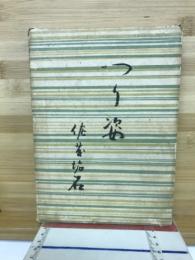 つり姿
佐藤垢石